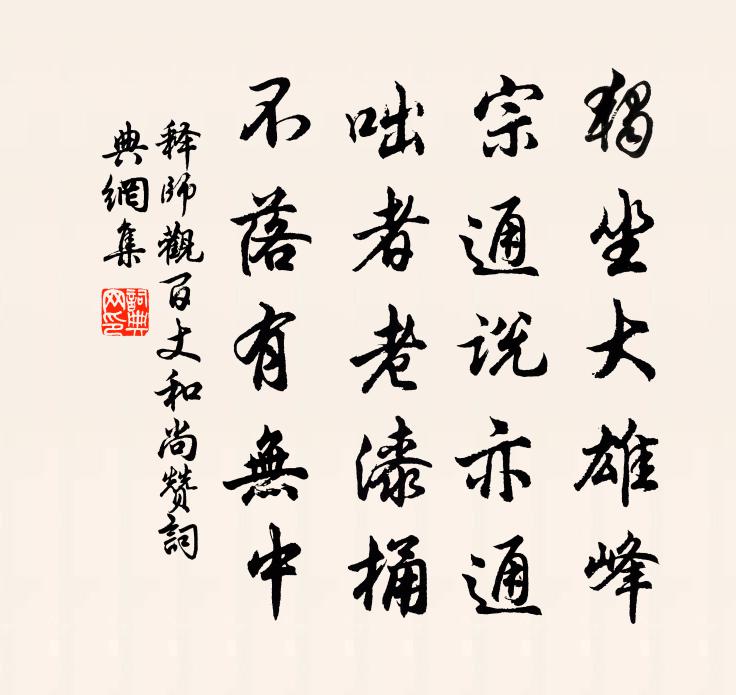 獨坐大雄峰
宗通説亦通
咄者老漆桶
不落有無中
释師觀百丈和尚赞詞
典網集
詞典網印